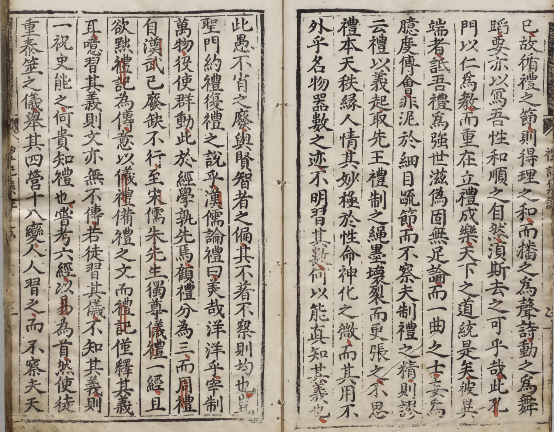 已故循禮之節則得理之和而播之為聲詩動之為舞
蹈要亦以寫吾性和順之自然須斯去之可乎哉此孔
門以仁為敎而重在立禮成樂天下之道統是矣彼異
端者詆吾禮為強世滋偽固無足論而一曲之士妄為
臆度傅會非泥於細目疏節而不察夫制禮之精則謬
云禮以義起取先王禮制之繩墨壞裂而更張之不思
禮本天秩緣人情其妙極於性命神化之微而其用不
外乎名物器數之迹不明習其數何以能真知其義也
此愚不肖之廢與賢智者之偏其不著不察則均也
聖門約禮復禮之說乎漢儒論禮曰美哉洋洋乎宰制
萬物役使群動此於經學孰先焉顧禮分為三而周禮
自漢武已廢缺不行至宋儒朱先生獨尊儀禮一經且
欲黜禮記為傳意以儀禮備禮之文而禮記僅釋其義
耳意習其義則文亦無不備若徒習其儀不知其義則
一祝史能之何貴知禮也嘗考六經以易為首然使徒
重泰筮之儀舉其四營十八變人人習之而不察夫天